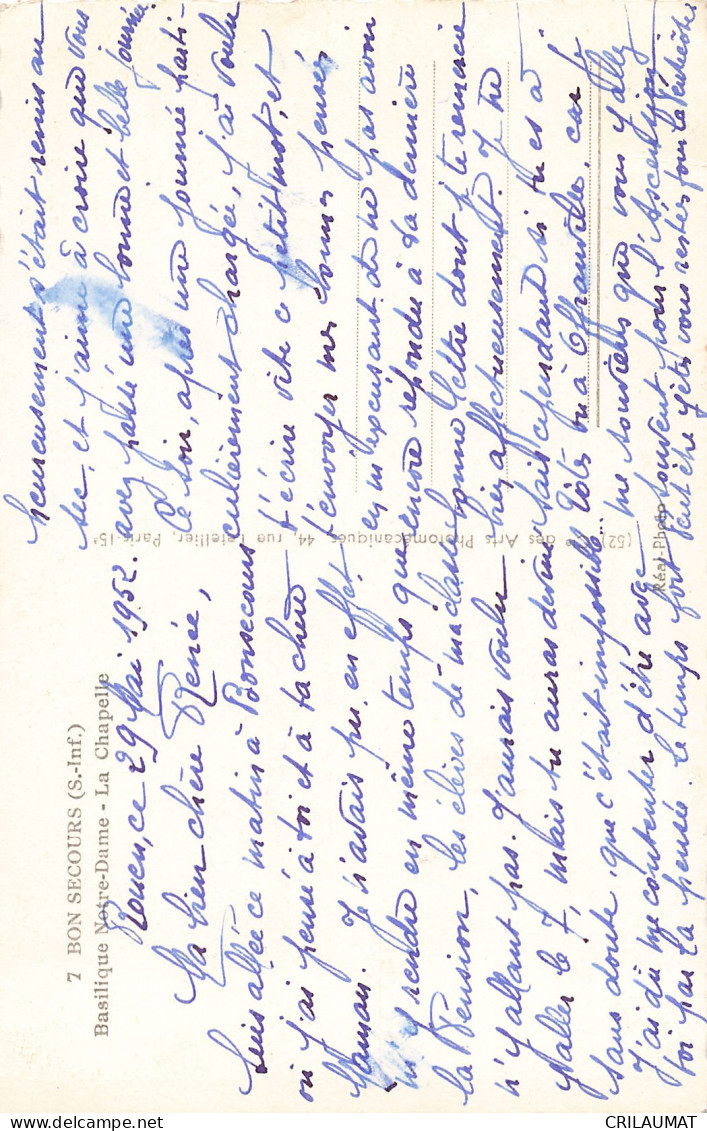 7 BON SECOURS (S.-Inf.)
Basilique Notre-Dame - La Chapelle
Rouen, ce 29 Mai 1952.
Ma bien chère Renée,
Suis allée ce matin à Bonsecours
où j'ai pensé à toi et à ta chère
Maman. Je n'avais pu, en effet,
m'y rendre en même temps que
la Pension, les élèves de ma classe
n'y allant pas. J'aurais voulu
y aller le 7, mais tu auras deviné
sans doute, que c'était impossible.
J'ai dû me contenter d'être avec
toi par la pensée. Le temps fort
heureusement s'était remis au
sec, et j'aime à croire que vous
avez passé une bonne et belle journée.
Ce soir, après une journée parti-
culièrement chargée, j'ai voulu
t'écrire vite ce petit mot, et
t'envoyer mes bonnes pensées
en m'excusant de ne pas avoir
encore répondu à ta dernière
bonne lettre dont je te remercie
bien affectueusement. Je ne
sais cependant si tu es à
ou à Offranville, car je
me souviens que vous y allez
souvent pour l'Ascension
Peut-être y êtes vous restés pour la Pentecôte
(52) Cie des Arts Photomécaniques, 44, rue Letellier, Paris-15e
Réal-Photo
CRILAUMAT